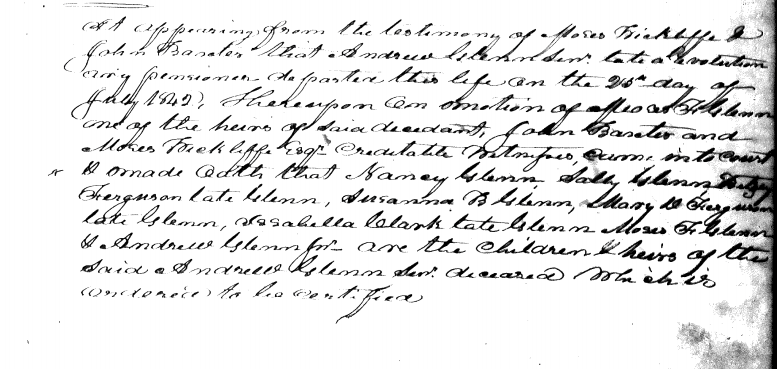 It appearing from the testimony of Moses Hickliffe &
John Baxter that Andrew Glenn Senr. late a revolution
ary pensioner departed this life on the 25th day of
July 1842, Thereupon on motion of Moses F Glenn
one of the heirs of said decedant, John Baxter and
Moses Hickliffe Esqr. Creditable Witnesses, came into Court
& made Oath that Nancy Glenn, Sally Glenn Betsy
Ferguson late Glenn, Susanna B Glenn, Mary D Ferguson
late Glenn, Issabella Clark late Glenn Moses F. Glenn
& Andrew Glenn Jnr. are the Children & heirs of the
said Andrew Glenn Senr. deceased Which is
ordered to be certified